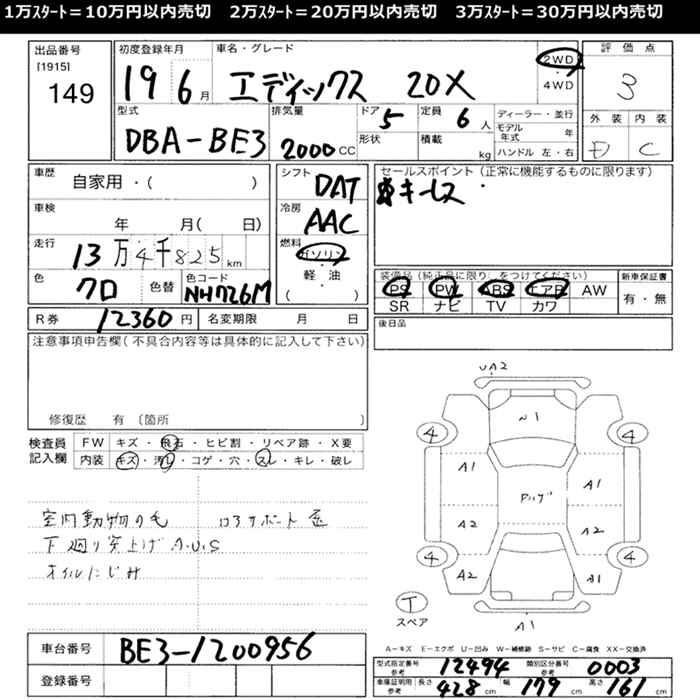 1万ｽﾀｰﾄ＝10万円以内売切　2万ｽﾀｰﾄ＝20万円以内売切　3万ｽﾀｰﾄ＝30万円以内売切
出品番号 初度登録年月 車名・グレード 評価点
[1915] 2WD
149 19 6月 エディックス 20X 4WD 3
型式 排気量 ドア 5 定員 6人 ディーラー・並行 外装 内装
DBA-BE3 2000CC 形状 積載 kg モデル年式 年 D C
ハンドル 左・右
車歴 自家用・( ) シフト DAT セールスポイント(正常に機能するものに限ります)
車検 年 月( 日) 冷房 AAC キーレス
走行 13万4千825km 燃料 ガソリン
軽・油
( )
色 クロ 色替 色コード NH726M
装備品(純正品に限り○をつけてください) 新車保証書
PS PW ABS エアB AW 有・無
SR ナビ TV カワ
R券 12360円 名変期限 月 日 後日品
注意事項申告欄(不具合内容等は具体的に記入して下さい)
修復歴 有 (箇所 )
検査員 FW キズ・飛石・ヒビ割・リペア跡・X要
記入欄 内装 キズ・汚れ・コゲ・穴・スレ・キレ・破レ
室内動物の毛 ロアサポート
下廻り突上げ A.U.S
オイルにじみ
UA2
4 4
A1 A1 A1
A2 A2
4 4
A2 A1
T
スペア A1
車台番号 BE3-1200956
登録番号
A－キズ E－エクボ U－凹み W－補修跡 S－サビ C－腐食 XX－交換済
型式指定番号 参考 12494 類別区分番号 参考 0003
車庫証明用 参考 長さ 428cm 幅 179cm 高さ 161cm